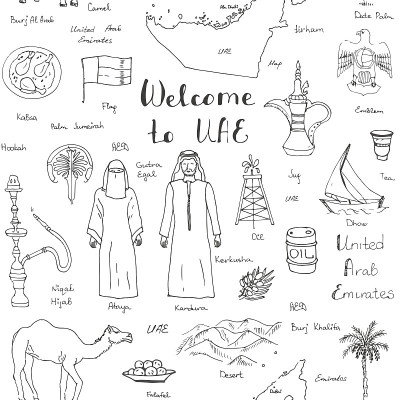 Camel
Burj Al Arab
United Arab
Emirates
Abu Dhabi
UAE
Map
dirham
Date Palm
Kabsa
Flag
Palm Jumeirah
Welcome
to UAE
Emblem
Hookah
AED
Gutra
Egal
Juj
UAE
Tea
Oil
Dhow
Kerkusha
OIL
United
Arab
Emirates
Niqab
Hijab
Abaya
Kandura
AED
UAE
Burj Khalifa
Desert
Falafel
Dubai
Emirates